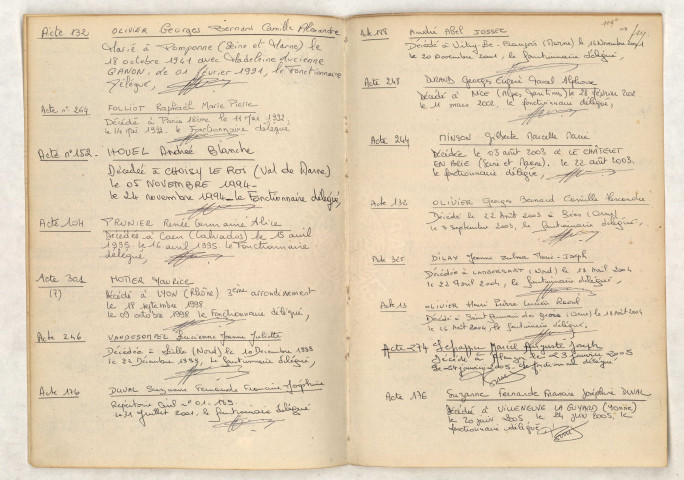 Acte 132 OLIVIER Georges Bernard Camille Alexandre
Marié à Pomponne (Seine et Marne) le
18 octobre 1941 avec Madeleine Lucienne
GANON, le 01 février 1991, le Fonctionnaire
délégué,
Acte n° 264 FOLLIOT Raphaël Marie Pierre
Décédé à Paris 18ème le 11 Mai 1992
le 14 Mai 1992. le Fonctionnaire délégué
Acte n° 152 HOUEL Andrée Blanche
Décédée à CHOISY LE ROI (Val de Marne)
le 05 NOVEMBRE 1994
le 24 novembre 1994 le Fonctionnaire délégué,
Acte 104 PRUNIER Renée Germaine Alice
Décédée à Caen (Calvados) le 15 avril
1995 le 16 avril 1995 le Fonctionnaire
délégué,
Acte 301 MOTIER Maurice
(7) Décédé à LYON (Rhône) 3ème arrondissement
le 18 septembre 1998
le 09 octobre 1998 le Fonctionnaire délégué,
Acte 246 Lucienne Jeanne Juliette
Décédée à Lille (Nord) le 10 Décembre 1999
le 22 Décembre 1999, le fonctionnaire délégué,
Acte 176 DUVAL Suzanne Fernande Francine Joséphine
Répertoire Civil n° 01.
le 31 Juillet 2001. le fonctionnaire délégué
Acte 188 André Abel JOSSET
Décédé à Vitry (Marne) le 16 Novembre
le 20 novembre 2001, le fonctionnaire délégué,
Acte 248 DURAND Georges Eugène Alphonse
Décédé à NICE (Alpes Maritimes) le 28 février 2002
le 11 mars 2002, le fonctionnaire délégué,
Acte 244 MINSON Gilberte Marcelle Marie
Décédée le 03 août 2003 à LE CHÂTELET
EN BRIE (Seine et Marne). le 22 août 2003.
le fonctionnaire délégué,
Acte 132 OLIVIER Georges Bernard Camille Alexandre
Décédé le 22 Août 2003 à
le 3 Septembre 2003, le fonctionnaire délégué,
Acte 325 DILAY Jeanne Zulma Marie-Joseph
Décédée à (Nord) le 18 2004
le 22 Avril 2004, le fonctionnaire délégué,
Acte 13 OLIVIER Henri Pierre Lucien Raoul
Décédé à Saint
le Août 2004, le fonctionnaire délégué,
Acte 274 Marcel Auguste Joseph
Décédé à le 23 Janvier 2005
le janvier 2005 le fonctionnaire délégué
Acte 176 Suzanne Fernande Francine Joséphine DUVAL
Décédée à VILLENEUVE LA GUYARD (Yonne)
le 20 juin 2005 le 24 juin 2005, le
fonctionnaire délégué